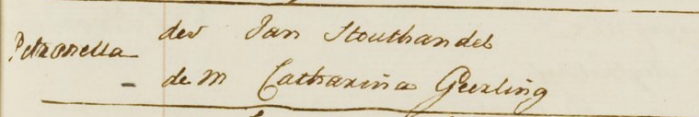 Petronella dev Jan Stouthandel
de m Catharina Geerling